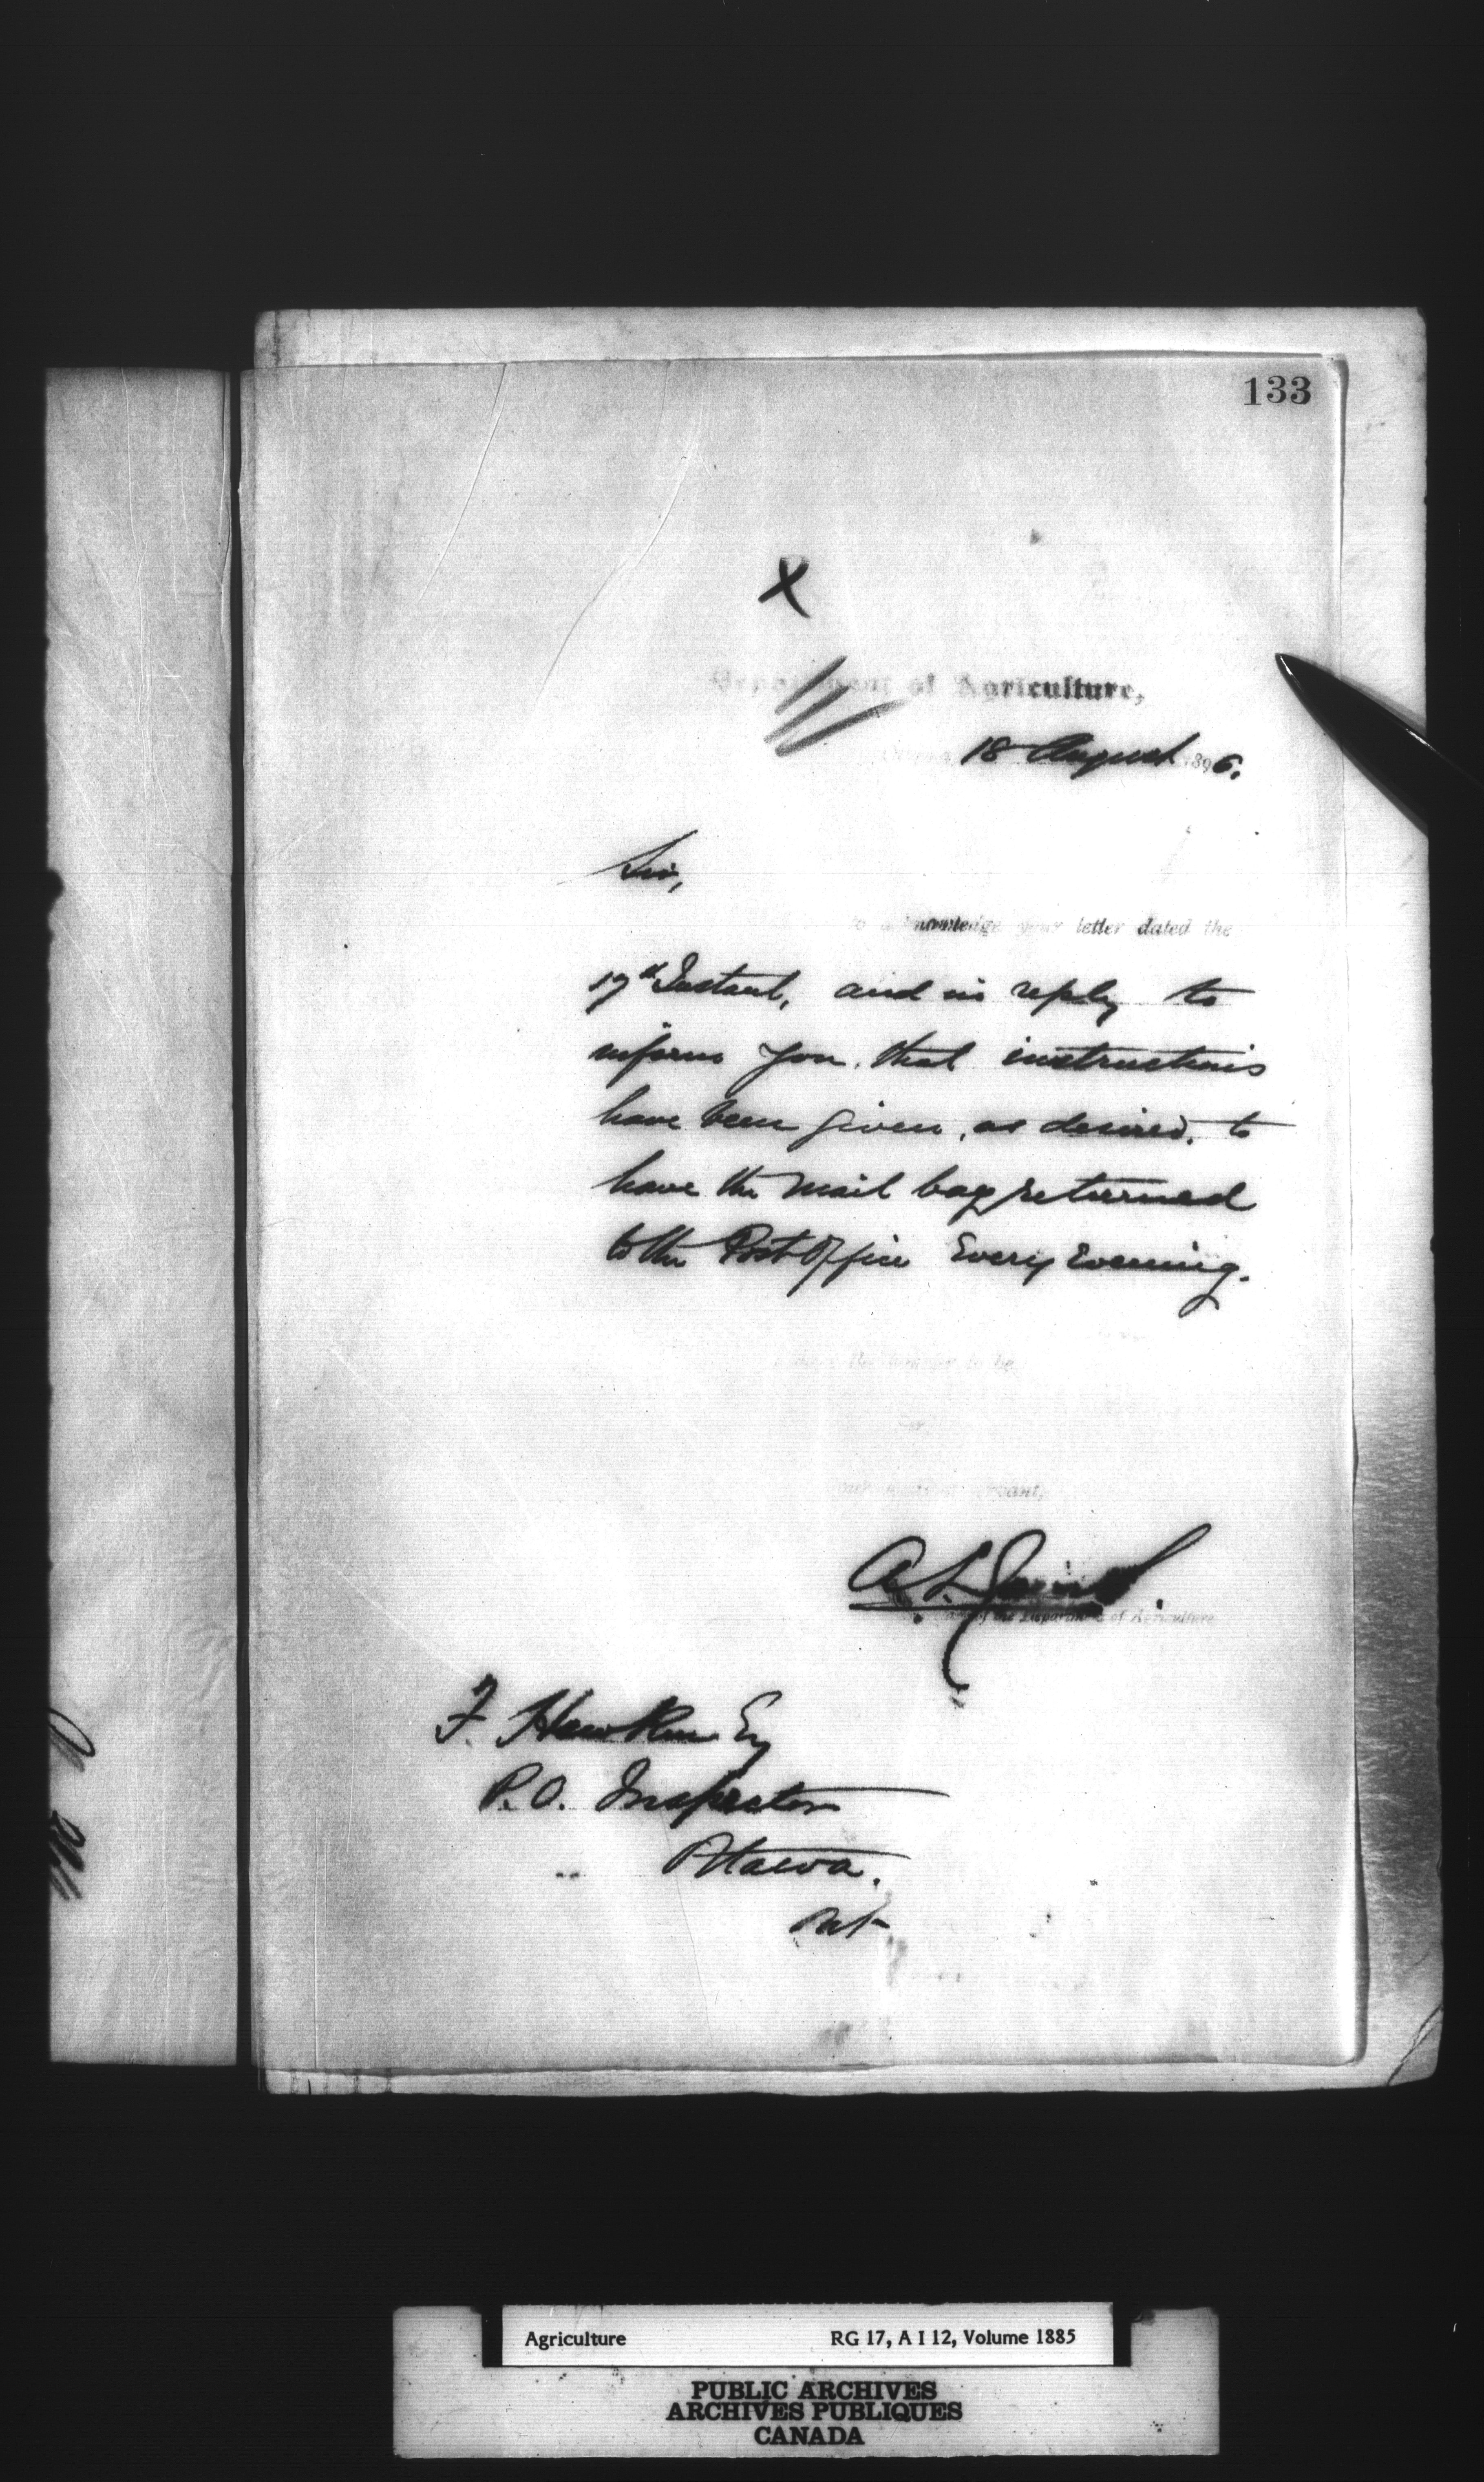 133
X
Department of Agriculture,
18 August 1896.
Sir,
to acknowledge your letter dated the
17th Instant, and in reply to
inform you, that instructions
have been given, as desired, to
have the mail bag returned
to the Post Office Every Evening.
to be
Sir
servant,
A. L. Jarvis
of the Department of Agriculture
F. Hawken Esq
P.O. Inspector
Ottawa.
Agriculture RG 17, A I 12, Volume 1885
PUBLIC ARCHIVES
ARCHIVES PUBLIQUES
CANADA